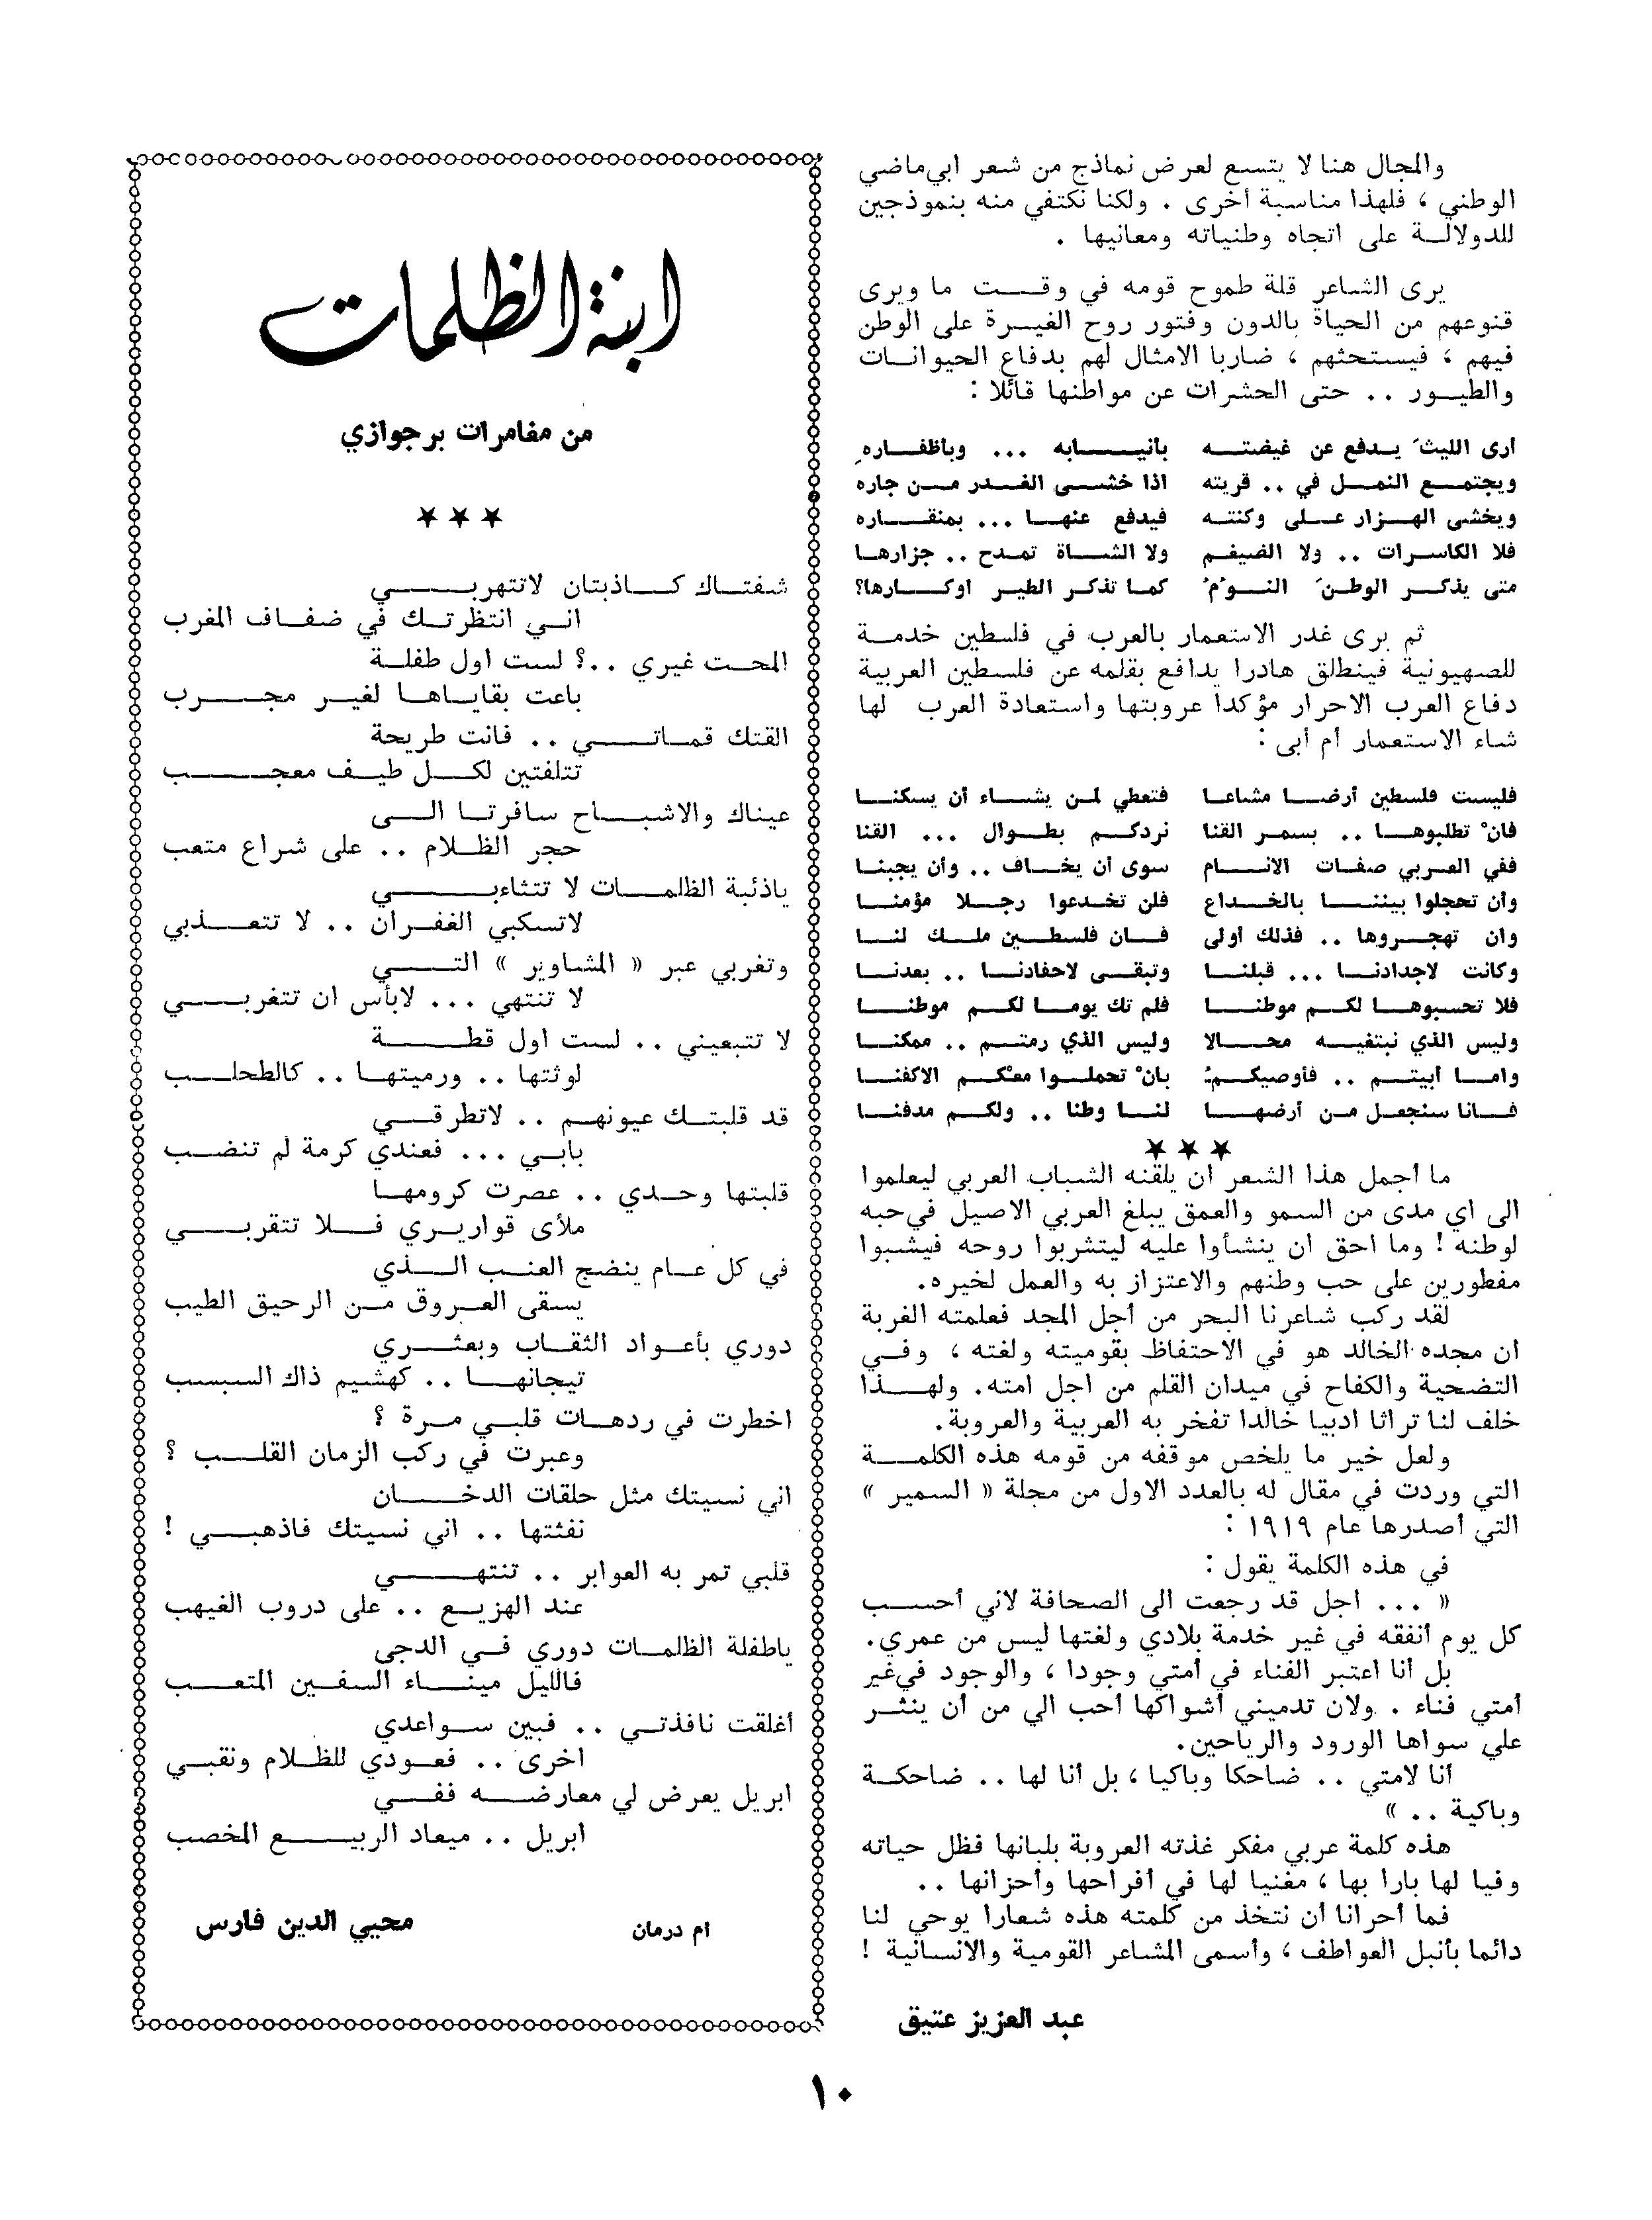 والمجال هنا لا يتسع لعرض نماذج من شعر ابي ماضي
الوطني ، فلهذا مناسبة أخرى . ولكنا نكتفي منه بنموذجين
للدولالة على اتجاه وطنياته ومعانيها .
يرى الشاعر قلة طموح قومه في وقت ما ويرى
قنوعهم من الحياة بالدون وفتور روح الغيرة على الوطن
فيهم ، فيستحثهم ، ضاربا الامثال لهم بدفاع الحيوانات
والطيور .. حتى الحشرات عن مواطنها قائلا :
أرى الليثَ يدفع عن غيضته بأنيابه ... وبأظفاره
ويجتمع النمل في .. قريته اذا خشى الغدر من جاره
ويخشى الهزار على وكنته فيدفع عنها ... بمنقاره
فلا الكاسرات .. ولا الضيغم ولا الشاة تمدح .. جزارها
متى يذكر الوطنَ النوّمُ كما تذكر الطير اوكارها؟
ثم يرى غدر الاستعمار بالعرب في فلسطين خدمة
للصهيونية فينطلق هادرا يدافع بقلمه عن فلسطين العربية
دفاع العرب الاحرار مؤكدا عروبتها واستعادة العرب لها
شاء الاستعمار أم أبى :
فليست فلسطين أرضا مشاعا فتعطي لمن يشاء أن يسكنا
فانْ تطلبوها .. بسمر القنا نردكم بطوال ... القنا
ففي العربي صفات الانام سوى أن يخاف .. وأن يجبنا
وأن تحجلوا بيننا بالخداع فلن تخدعوا رجلا مؤمنا
وان تهجروها .. فذلك أولى فان فلسطين ملك لنا
وكانت لاجدادنا ... قبلنا وتبقى لاحفادنا .. بعدنا
فلا تحسبوها لكم موطنا فلم تك يوما لكم موطنا
وليس الذي نبتغيه محالا وليس الذي رمتم .. ممكنا
واما أبيتم .. فأوصيكم: بانْ تحملوا معْكم الاكفنا
فانا سنجعل من أرضها لنا وطنا .. ولكم مدفنا
★ ★ ★
ما أجمل هذا الشعر ان يلقنه الشباب العربي ليعلموا
الى اي مدى من السمو والعمق يبلغ العربي الاصيل في حبه
لوطنه ! وما احق ان ينشأوا عليه ليتشربوا روحه فيشبوا
مفطورين على حب وطنهم والاعتزاز به والعمل لخيره.
لقد ركب شاعرنا البحر من أجل المجد فعلمته الغربة
ان مجده الخالد هو في الاحتفاظ بقوميته ولغته ، وفي
التضحية والكفاح في ميدان القلم من اجل امته. ولهذا
خلف لنا تراثا ادبيا خالدا تفخر به العربية والعروبة.
ولعل خير ما يلخص موقفه من قومه هذه الكلمة
التي وردت في مقال له بالعدد الاول من مجلة « السمير »
التي أصدرها عام ١٩١٩ :
في هذه الكلمة يقول :
« ... اجل قد رجعت الى الصحافة لاني أحسب
كل يوم أنفقه في غير خدمة بلادي ولغتها ليس من عمري.
بل أنا اعتبر الفناء في أمتي وجودا ، والوجود في غير
أمتي فناء . ولان تدميني أشواكها أحب الي من أن ينثر
علي سواها الورود والرياحين.
أنا لامتي .. ضاحكا وباكيا ، بل أنا لها .. ضاحكة
وباكية .. »
هذه كلمة عربي مفكر غذته العروبة بلبانها فظل حياته
وفيا لها بارا بها ، مغنيا لها في أفراحها وأحزانها ..
فما أحرانا أن نتخذ من كلمته هذه شعارا يوحي لنا
دائما بأنبل العواطف ، وأسمى المشاعر القومية والانسانية !
عبد العزيز عتيق
ابنة الظلمات
من مغامرات برجوازي
★ ★ ★
شفتاك كاذبتان لاتتهربي
اني انتظرتك في ضفاف المغرب
المحت غيري ..؟ لست اول طفلة
باعت بقاياها لغير مجرب
القتك قماتي .. فانت طريحة
تتلفتين لكل طيف معجب
عيناك والاشباح سافرتا الى
حجر الظلام .. على شراع متعب
ياذئبة الظلمات لا تتثاءبي
لاتسكبي الغفران .. لا تتعذبي
وتغربي عبر « المشاوير » التي
لا تنتهي ... لابأس ان تتغربي
لا تتبعيني .. لست اول قطة
لوثتها .. ورميتها .. كالطحلب
قد قلبتك عيونهم .. لاتطرقي
بابي ... فعندي كرمة لم تنضب
قلبتها وحدي .. عصرت كرومها
ملأى قواريري فلا تتقربي
في كل عام ينضج العنب الذي
يسقى العروق من الرحيق الطيب
دوري بأعواد الثقاب وبعثري
تيجانها .. كهشيم ذاك السبسب
اخطرت في ردهات قلبي مرة ؟
وعبرت في ركب الزمان القلب ؟
اني نسيتك مثل حلقات الدخان
نفثتها .. اني نسيتك فاذهبي !
قلبي تمر به العوابر .. تنتهي
عند الهزيع .. على دروب الغيهب
ياطفلة الظلمات دوري في الدجى
فالليل ميناء السفين المتعب
أغلقت نافذتي .. فبين سواعدي
اخرى .. فعودي للظلام ونقبي
ابريل يعرض لي معارضه ففي
ابريل .. ميعاد الربيع المخصب
ام درمان محيي الدين فارس
١٠